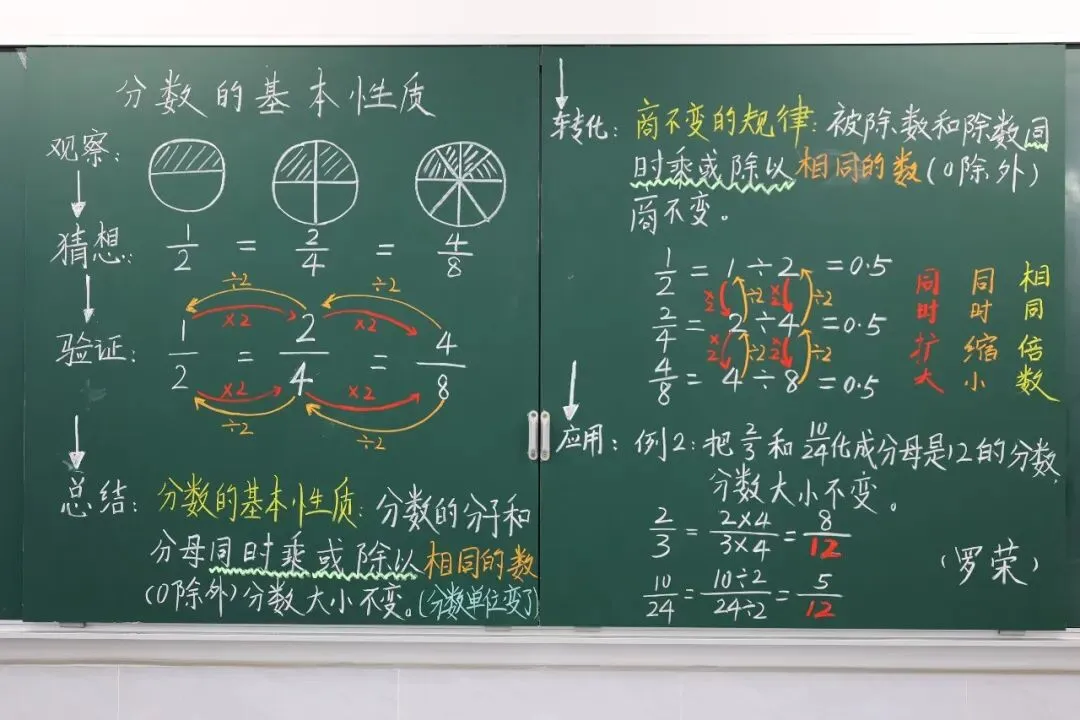 分数的基本性质
观察:
猜想: 1/2 = 2/4 = 4/8
÷2 ÷2
×2 ×2
验证: 1/2 = 2/4 = 4/8
×2 ×2
÷2 ÷2
总结: 分数的基本性质: 分数的分子和
分母同时乘或除以相同的数
(0除外)分数大小不变。(分数单位变了)
转化: 商不变的规律: 被除数和除数同
时乘或除以相同的数(0除外)
商不变。
1/2 = 1÷2 = 0.5
×2 ÷2 ×2 ÷2
2/4 = 2÷4 = 0.5
×2 ÷2 ×2 ÷2
4/8 = 4÷8 = 0.5
同时扩大
同时缩小
相同倍数
应用: 例2: 把2/3和10/24化成分母是12的分数,
分数大小不变。
2/3 = 2×4/3×4 = 8/12
10/24 = 10÷2/24÷2 = 5/12
(罗荣)